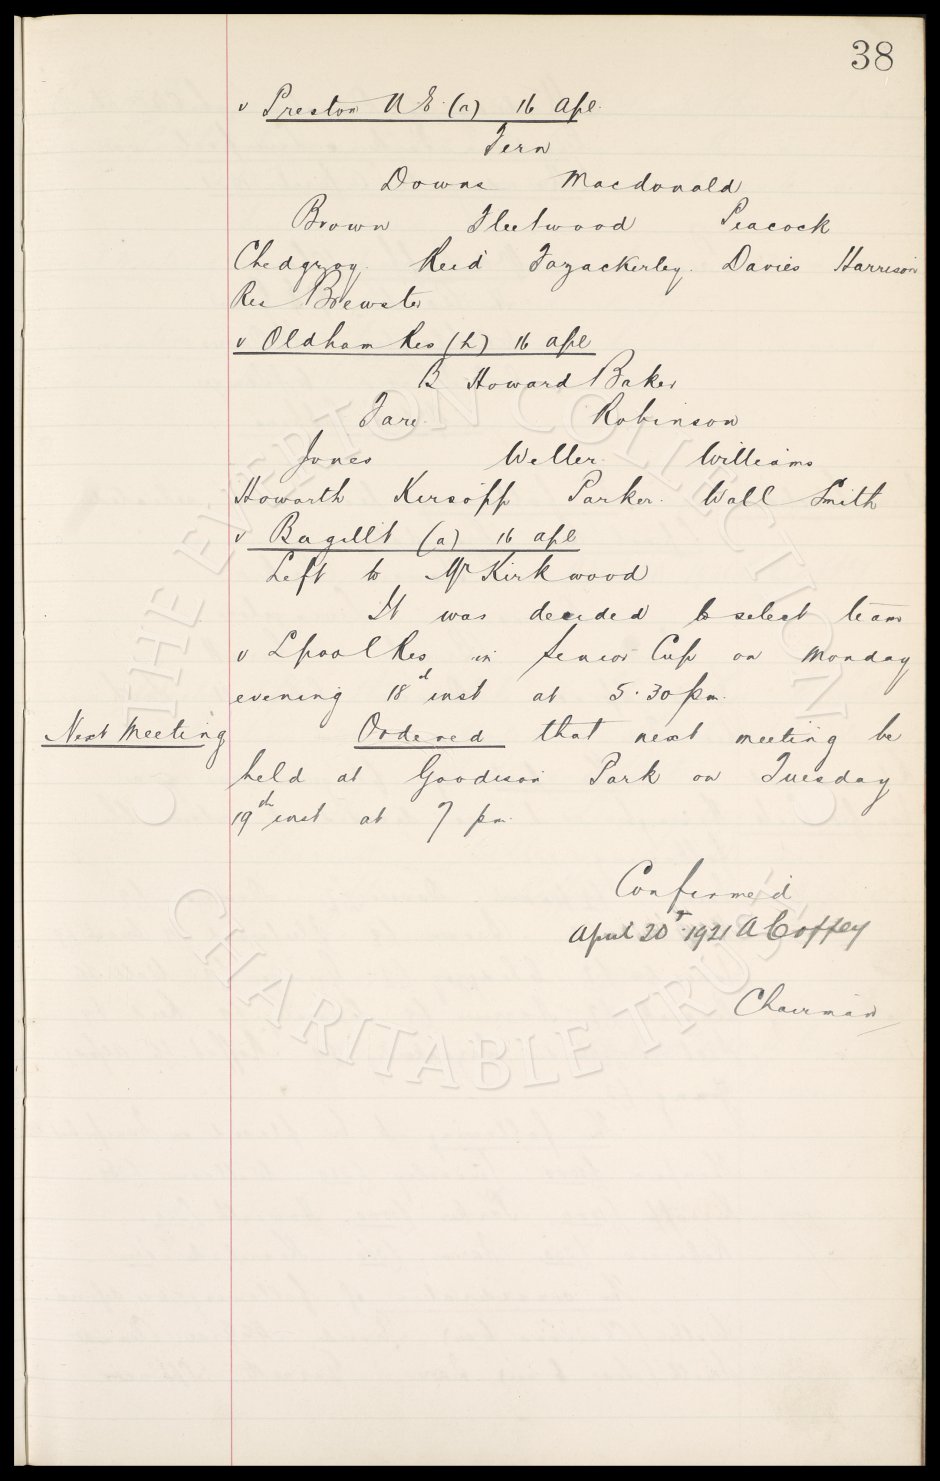 38
v Preston N E. (a) 16 Apl.
Fern
Downs Macdonald
Brown Fleetwood Peacock
Chedgzoy. Reid Fazackerley. Davies Harrison
Res Brewster
v Oldham Res (h) 16 apl
B Howard Baker
Fare. Robinson
Jones Weller. Williams
Howarth Kirsopp Parker. Wall Smith
v Bagillt (a) 16 apl
Left to Mr Kirkwood
It was decided to select team
v Lpool Res in Senior Cup on Monday
evening 18th inst at 5.30 pm.
Next Meeting Ordered that next meeting be
held at Goodison Park on Tuesday
19th inst at 7 pm.
Confirmed
April 20th 1921 A Coffey
Chairman
THE EVERTON COLLECTION
CHARITABLE TRUST